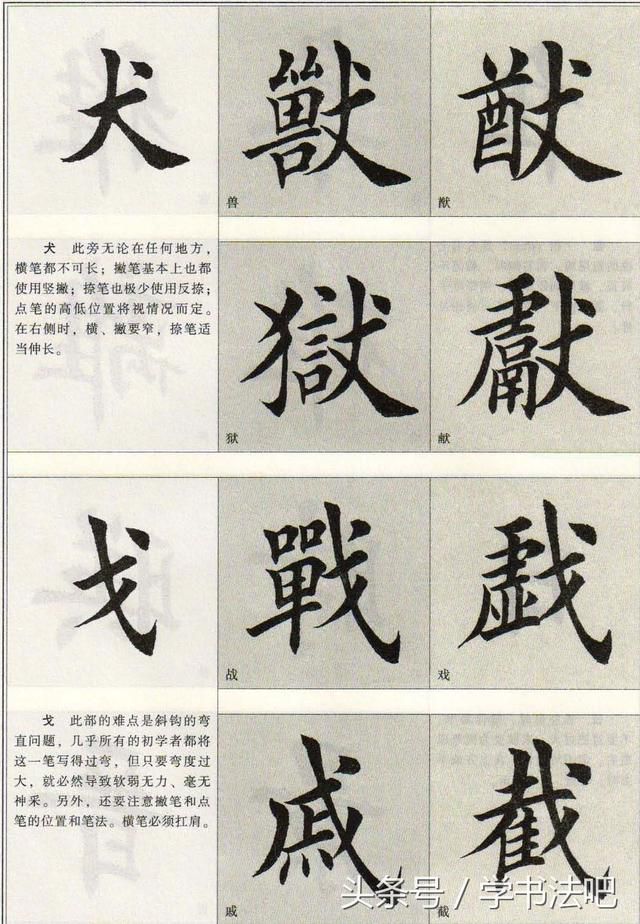 犬 獸 猷
兽 猷
犬 此旁无论在任何地方，
横笔都不可长；撇笔基本上也都
使用竖撇；捺笔也极少使用反捺；
点笔的高低位置将视情况而定。
在右侧时，横、撇要窄，捺笔适
当伸长。
獄 獻
狱 献
戈 戰 戱
战 戏
戈 此部的难点是斜钩的弯
直问题，几乎所有的初学者都将
这一笔写得过弯，但只要弯度过
大，就必然导致软弱无力、毫无
神采。另外，还要注意撇笔和点
笔的位置和笔法。横笔必须扛肩。
戚 截
戚 截
头条号 / 学书法吧